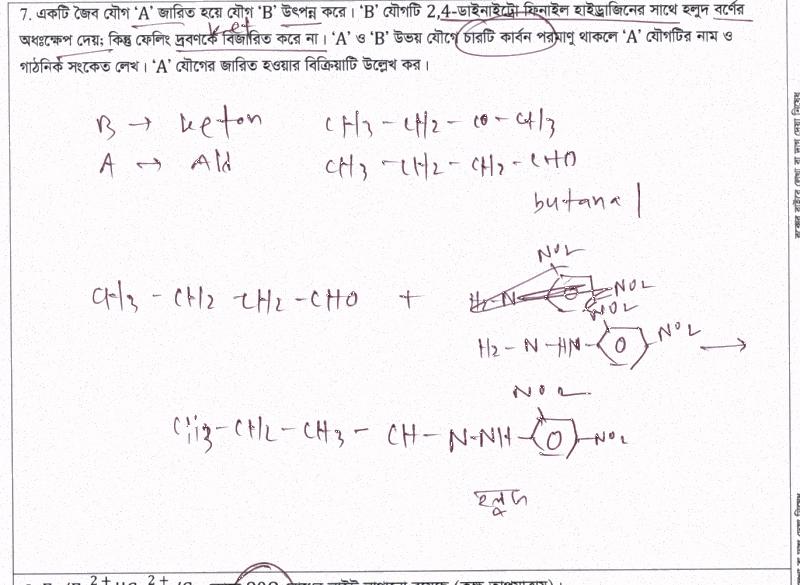 7. একটি জৈব যৌগ ‘A’ জারিত হয়ে যৌগ ‘B’ উৎপন্ন করে। ‘B’ যৌগটি 2,4-ডাইনাইট্রো ফিনাইল হাইড্রাজিনের সাথে হলুদ বর্ণের
অধঃক্ষেপ দেয়; কিন্তু ফেলিং দ্রবণকে বিজারিত করে না। ‘A’ ও ‘B’ উভয় যৌগে চারটি কার্বন পরমাণু থাকলে ‘A’ যৌগটির নাম ও
গাঠনিক সংকেত লেখ। ‘A’ যৌগের জারিত হওয়ার বিক্রিয়াটি উল্লেখ কর।
B → keton CH3 – CH2 – CO – CH3
A → Ald CH3 – CH2 – CH2 – CHO
butanal
NO2
CH3 – CH2 – CH2 – CHO + NO2
NO2
H2 – N – HN – NO2 →
NO2
CH3 – CH2 – CH3 – CH – N – NH – NO2
হলুদ